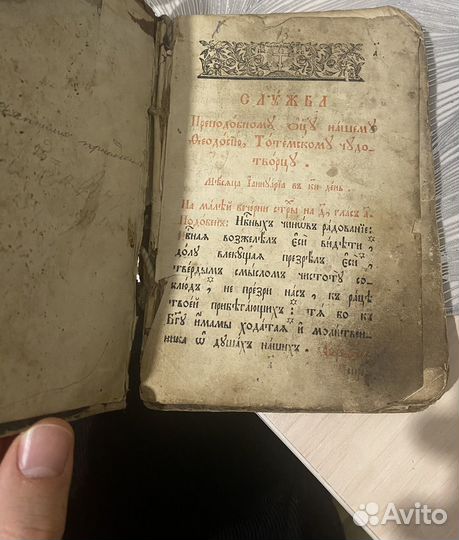 СЛꙋ́ЖБА
Преподо́бному ѻ҆ц҃ꙋ на́шемꙋ
Ѳеодо́сїю, То́темскомꙋ чꙋдо-
тво́рцꙋ.
Мѣсѧца І҆аннꙋа́рїа въ ки де́нь.
На ма́лѣй вече́рни стр҃ы на д҃, гла́съ а҃.
Подо́бенъ: Нб҃ныхъ чинѡ́въ ра́дованїе:
возжелѣ́лъ є҆сѝ ви́дѣти,
до́лꙋ влекꙋ́щаѧ презрѣ́лъ є҆сѝ,
тве́рдымъ смы́сломъ чистотꙋ̀ со-
блю́дъ, не пре́зри на́съ, къ ра́цѣ
твое́й прибѣга́ющихъ: тѧ́ бо къ
бг҃ꙋ и҆́мамы хода́таѧ и҆ моли́твен-
ника ѡ҆ дꙋша́хъ на́шихъ.
Avito